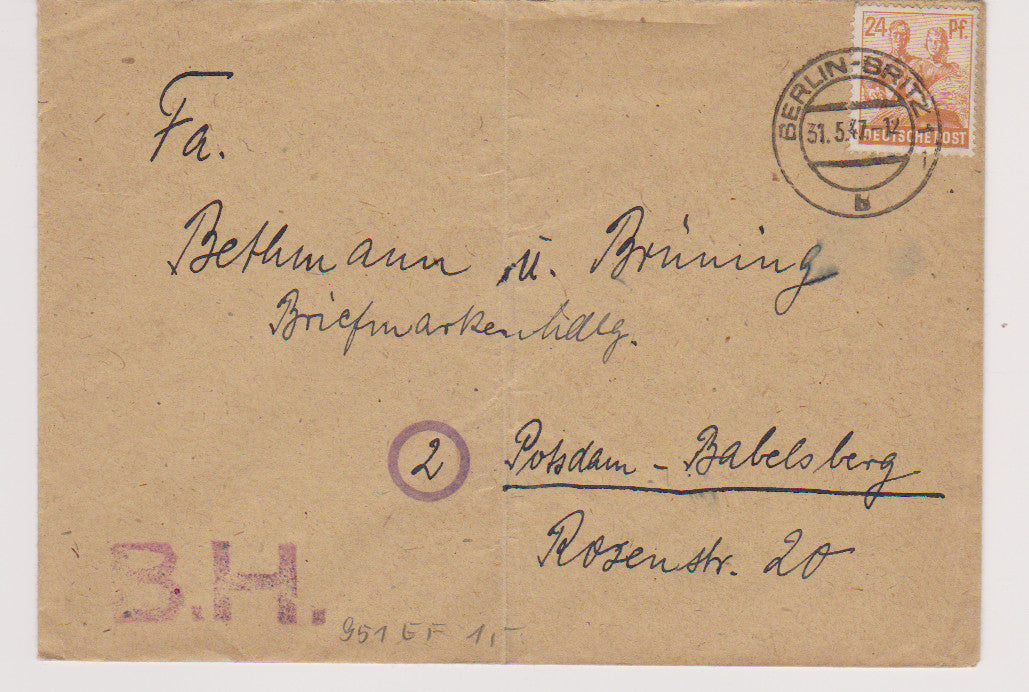 24 Pf.
DEUTSCHE POST
BERLIN-BRITZ 1
31.5.47.-12
Fa.
Bethmann u. Brüning
Briefmarkenhdlg.
2 Potsdam - Babelsberg
Rosenstr. 20
B.H.
951 EF 1,-